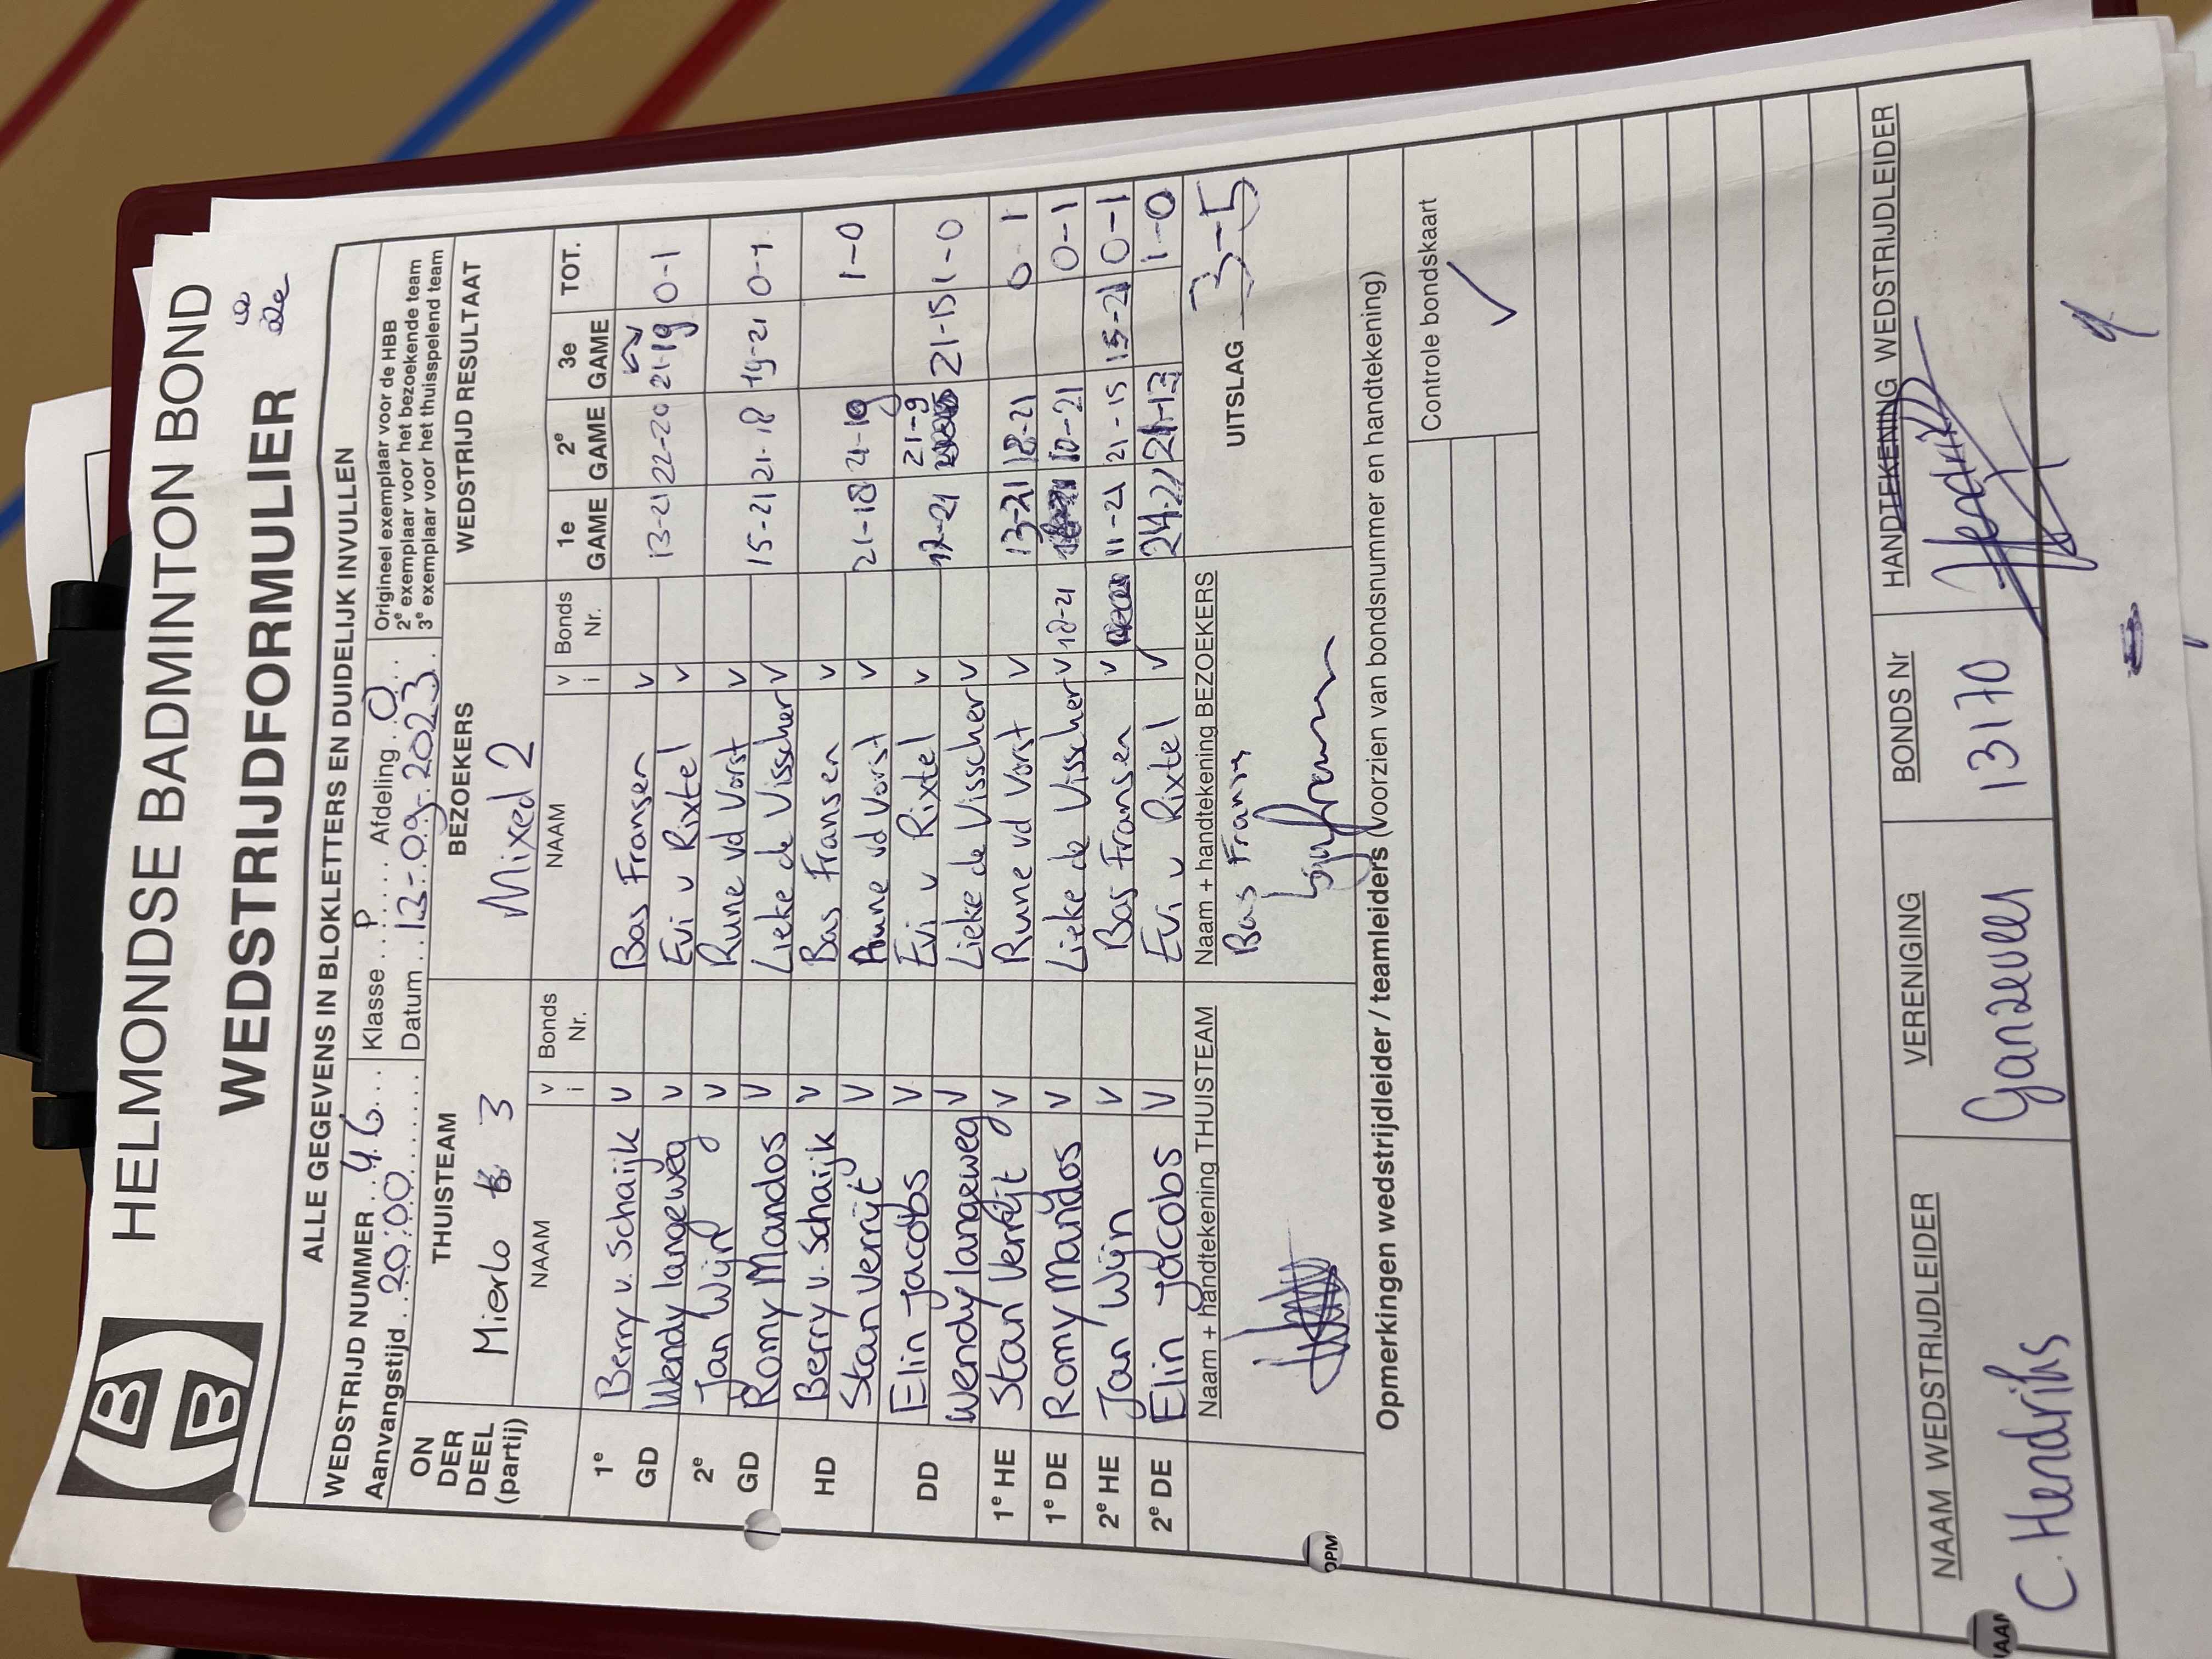 HELMONDSE BADMINTON BOND
WEDSTRIJDFORMULIER
ALLE GEGEVENS IN BLOKLETTERS EN DUIDELIJK INVULLEN
WEDSTRIJD NUMMER 46 Klasse P Afdeling 0 Origineel exemplaar voor de HBB
Aanvangstijd 20:00 Datum 12-09-2023 2e exemplaar voor het bezoekende team
3e exemplaar voor het thuisspelend team
ON DER DEEL (partij) THUISTEAM BEZOEKERS WEDSTRIJD RESULTAAT
Mierlo 3 Mixed 2
NAAM v i Bonds Nr. NAAM v i Bonds Nr. 1e GAME 2e GAME 3e GAME TOT.
1e GD Berry v. Schaijk V Bas Fransen V 13-21 22-20 21-19 0-1
Wendy langeweg V Evi v Rixtel V
2e GD Jan Wijn V Rune vd Vorst V 15-21 21-18 19-21 0-1
Romy Mandos V Lieke de Visscher V
HD Berry v. Schaijk V Bas Fransen V 21-18 21-19 1-0
Stan Verrijt V Rune vd Vorst V
DD Elin Jacobs V Evi v Rixtel V 17-21 21-9 21-15 1-0
Wendy langeweg V Lieke de Visscher V
1e HE Stan Verrijt V Rune vd Vorst V 13-21 18-21 0-1
1e DE Romy Mandos V Lieke de Visscher V 18-21 10-21 0-1
2e HE Jan Wijn V Bas Fransen V 11-21 21-15 15-21 0-1
2e DE Elin Jacobs V Evi v Rixtel V 24-22 21-13 1-0
Naam + handtekening THUISTEAM Naam + handtekening BEZOEKERS UITSLAG 3-5
Bas Fransen
Opmerkingen wedstrijdleider / teamleiders (voorzien van bondsnummer en handtekening)
Controle bondskaart
NAAM WEDSTRIJDLEIDER VERENIGING BONDS Nr HANDTEKENING WEDSTRIJDLEIDER
C. Hendriks Ganzeveer 13170
OPM